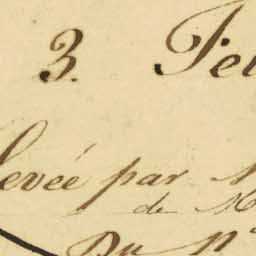 3. Fe
Levée par
de M
Du n°